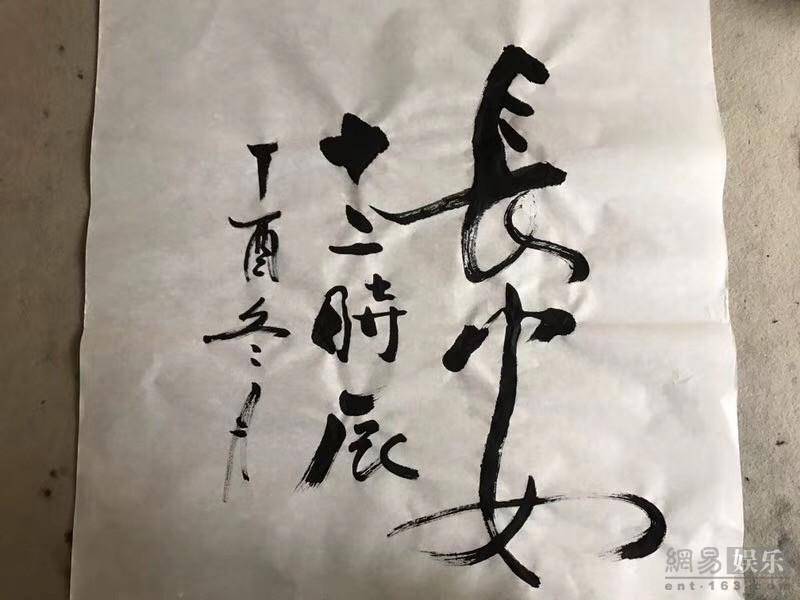 長安
十二時辰
丁酉冬月
網易娱乐
ent.163.com